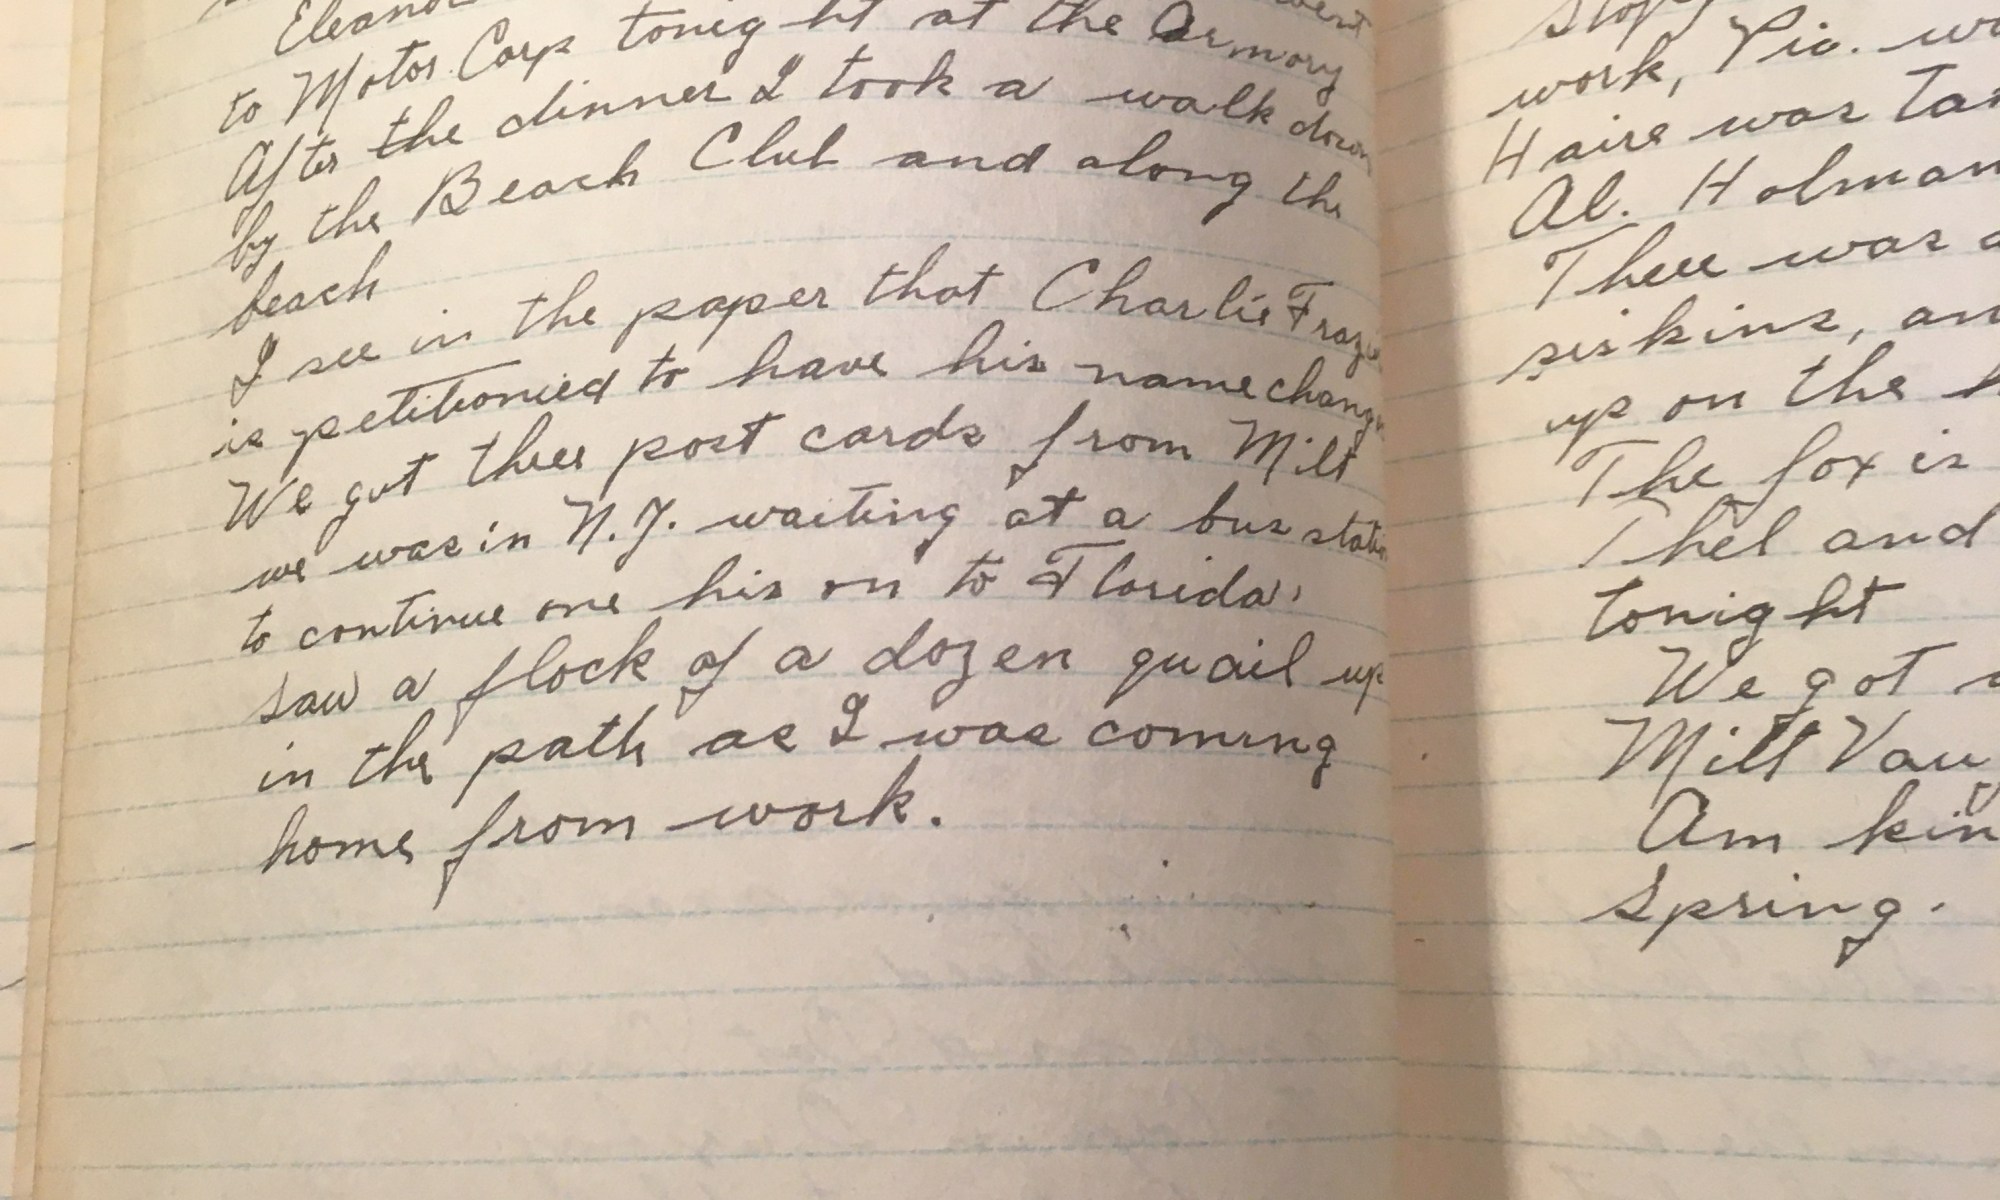 to Motor Corp tonight at the Armory
After the dinner I took a walk down
by the Beach Club and along the
beach
I see in the paper that Charlie
is petitionied to have his name
We got three post cards from Milt
we was in N.J. waiting at a bus
to continue one his on to Florida,
saw a flock of a dozen quail up
in the path as I was coming
home from work.
work, Pio.
Haire was
Al. Holman
There was a
siskins,
up on the
The fox is
Thel and
tonight
We got
Milt
Am
Spring.